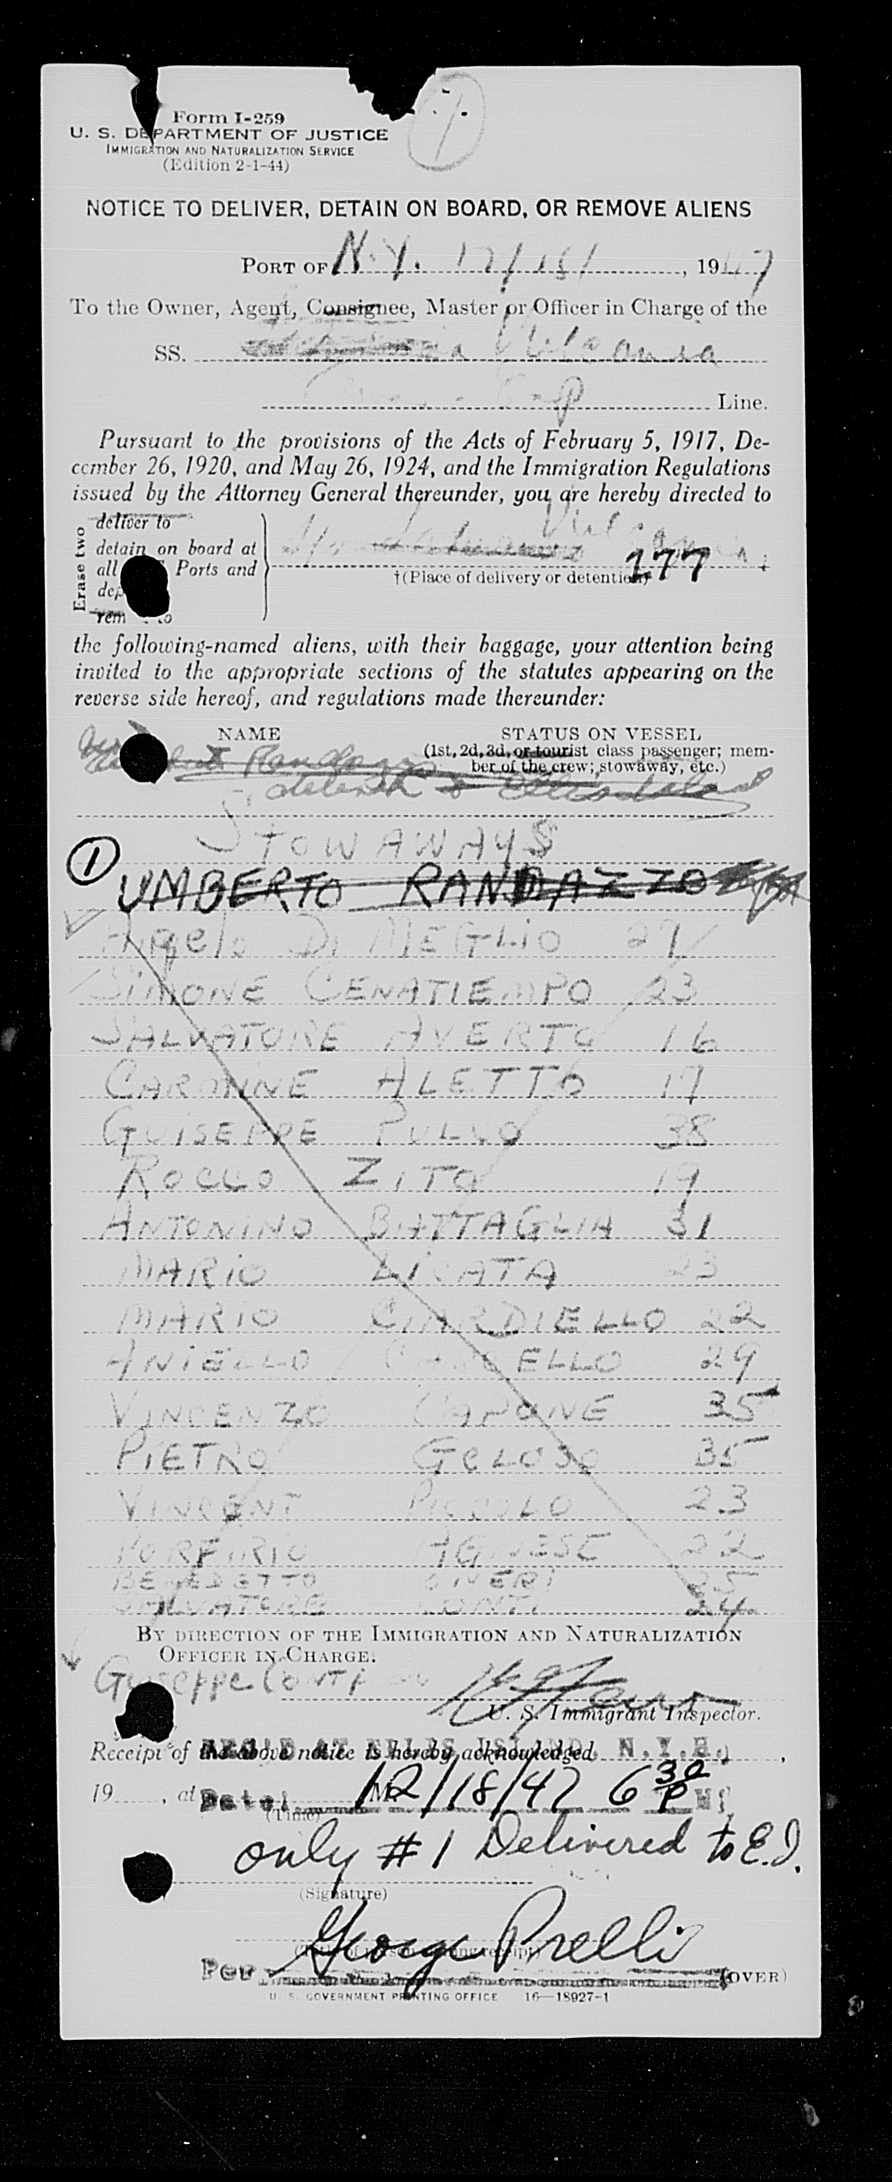 Form I-259
U. S. DEPARTMENT OF JUSTICE
IMMIGRATION AND NATURALIZATION SERVICE
(Edition 2-1-44)
NOTICE TO DELIVER, DETAIN ON BOARD, OR REMOVE ALIENS
PORT OF N.Y. 12/18/, 1947
To the Owner, Agent, Consignee, Master or Officer in Charge of the
SS. Vulcania
Line.
Pursuant to the provisions of the Acts of February 5, 1917, De-
cember 26, 1920, and May 26, 1924, and the Immigration Regulations
issued by the Attorney General thereunder, you are hereby directed to
Erase two
deliver to
detain on board at
all Ports and
rem to
Vulcania
177
†(Place of delivery or detention)
the following-named aliens, with their baggage, your attention being
invited to the appropriate sections of the statutes appearing on the
reverse side hereof, and regulations made thereunder:
NAME STATUS ON VESSEL
(1st, 2d, 3d, or tourist class passenger; mem-
ber of the crew; stowaway, etc.)
Randazzo
deliver to Ellis Island
STOWAWAYS
1 UMBERTO RANDAZZO
Angelo DI MEGLIO 27
SIMONE CENATIEMPO 23
SALVATORE AVERTO 16
CARMINE ALETTO 17
GUISEPPE PULLO 38
ROCCO ZITO 19
ANTONINO BATTAGLIA 31
MARIO LICATA 23
MARIO CIARDIELLO 22
ANIELLO 29
VINCENZO CAPONE 35
PIETRO GELOSO 35
VINCENT PICCOLO 23
PORFIRIO AGNESE 22
BENEDETTO 25
SALVATORE CONTI 24
BY DIRECTION OF THE IMMIGRATION AND NATURALIZATION
OFFICER IN CHARGE.
Guiseppe Conti
U. S. Immigrant Inspector.
Receipt of the above notice is hereby acknowledged
REC'D AT ELLIS ISLAND, N.Y.H.,
19 , at M.
Date: 12/18/47 6 30 PM
(Time)
only #1 Delivered to E.I.
(Signature)
George Prelli
Per
(OVER)
U. S. GOVERNMENT PRINTING OFFICE 16—18927-1